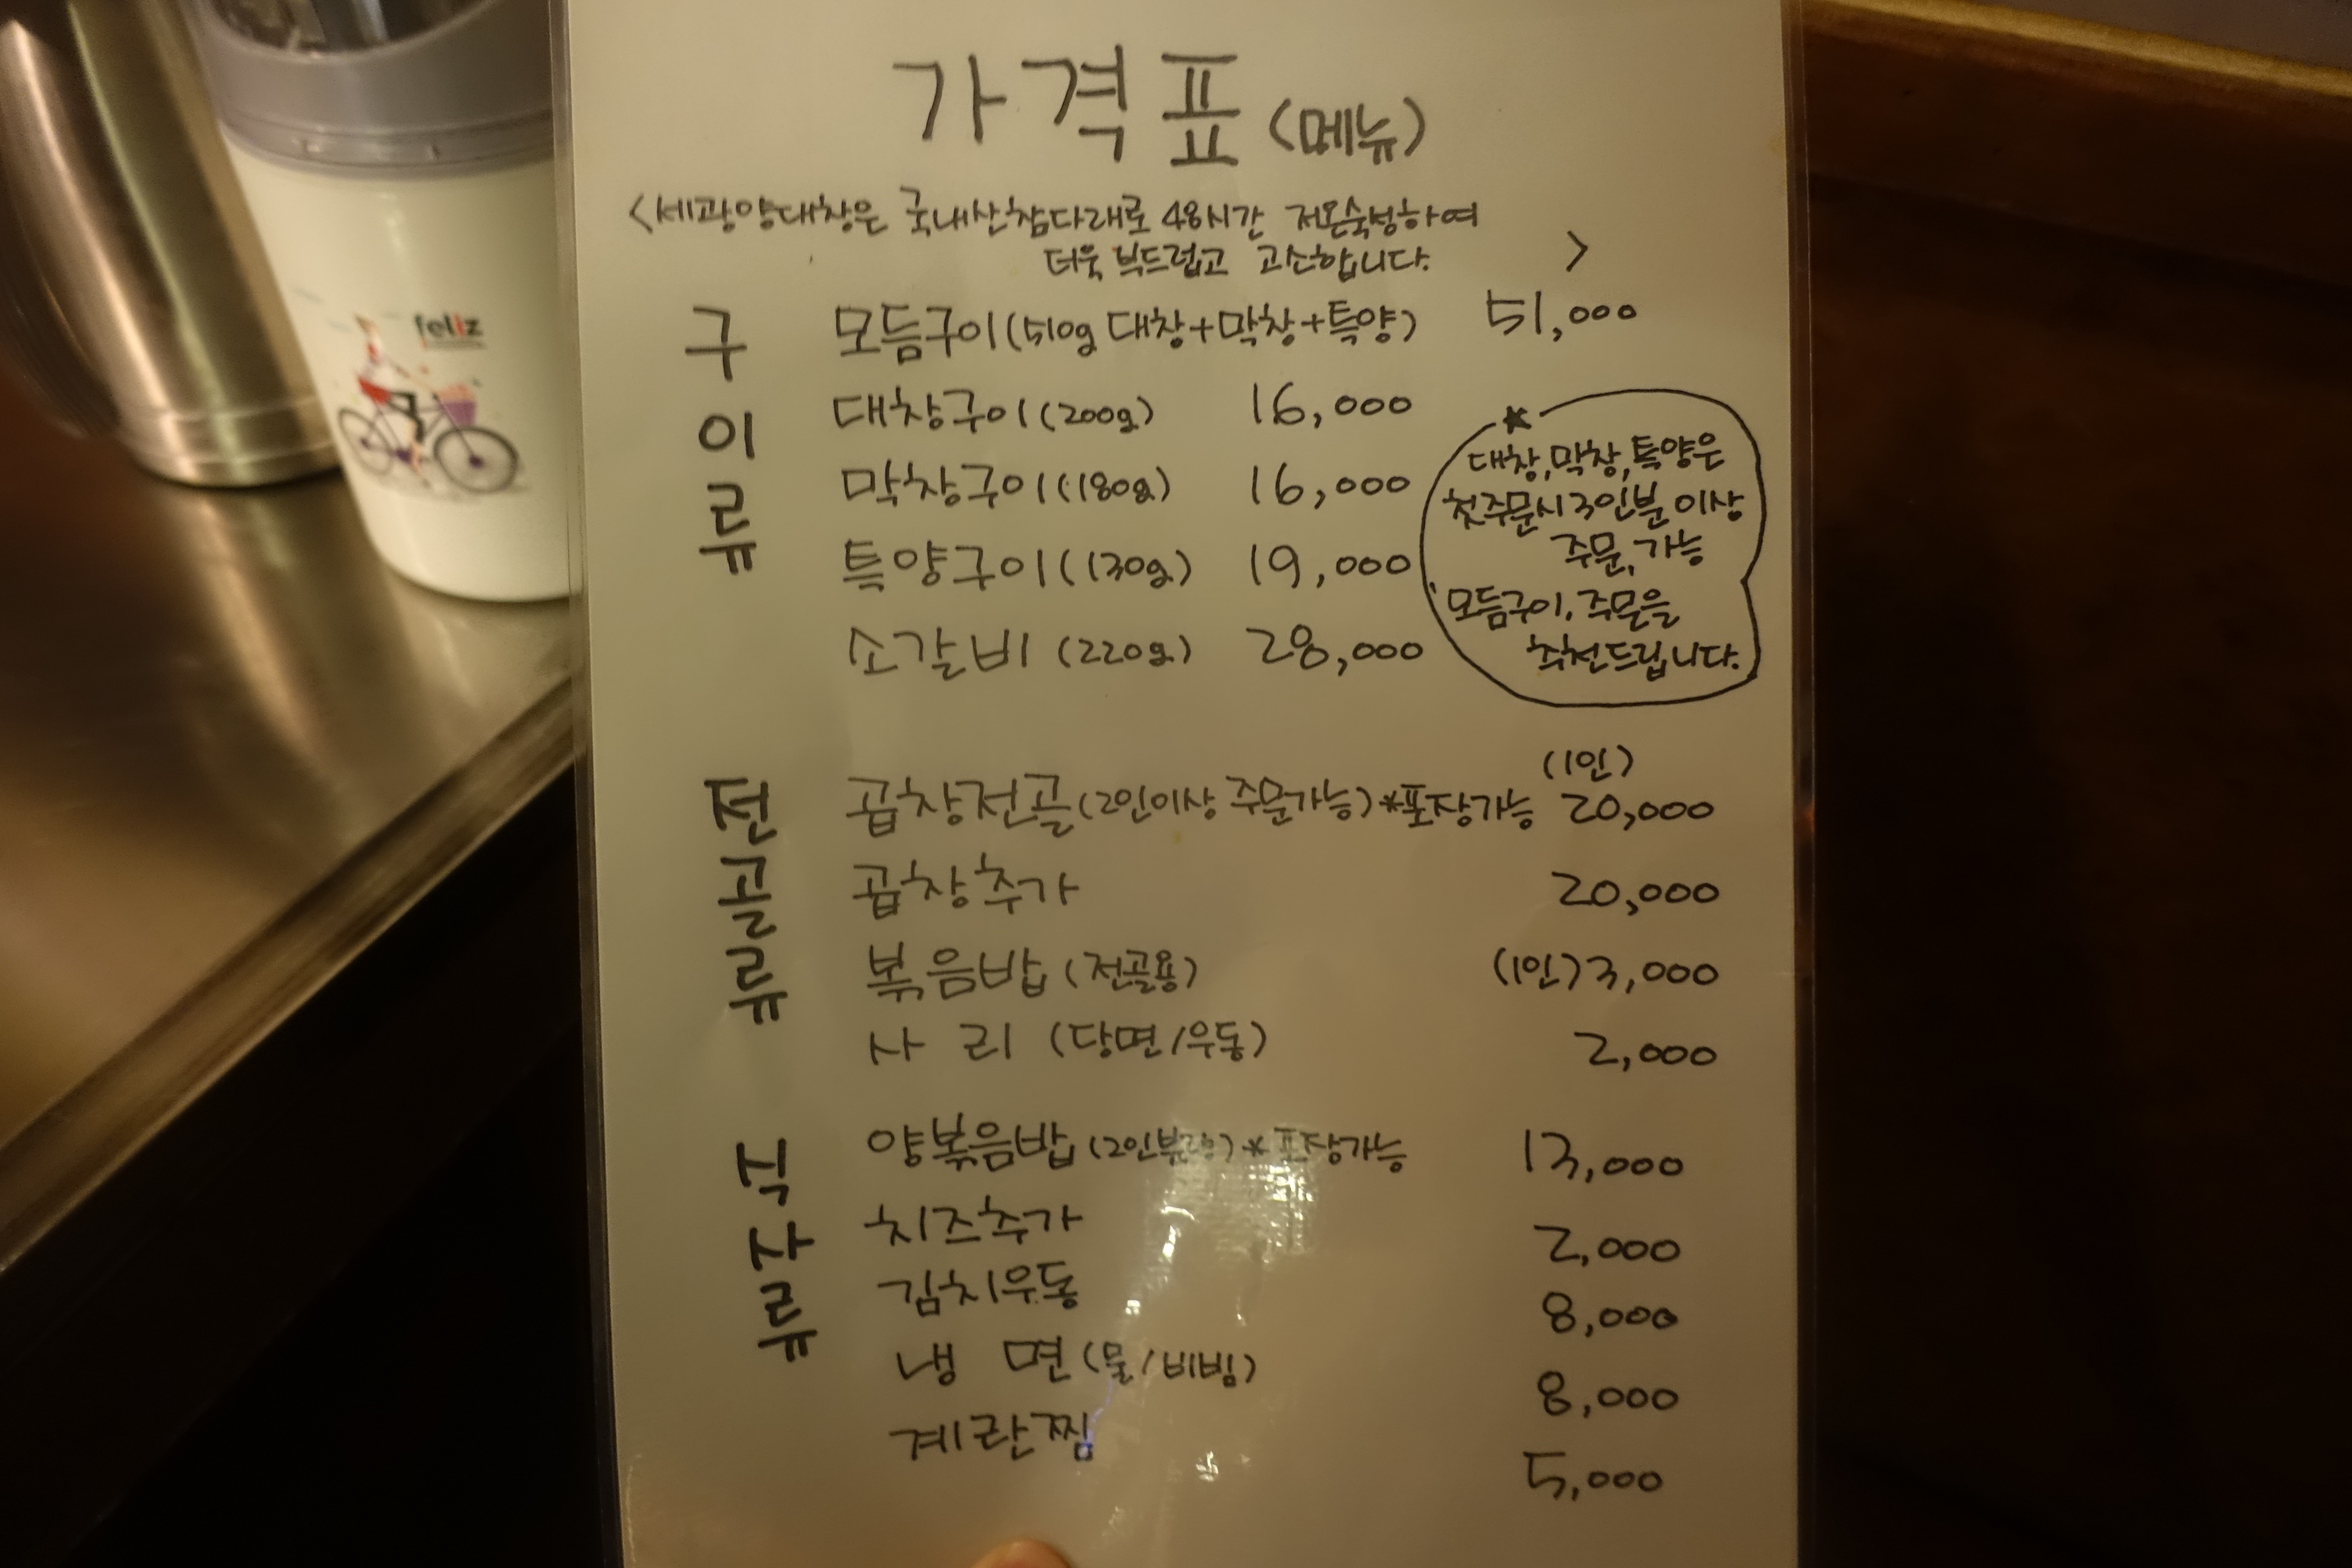 feliz
가격표 (메뉴)
<세광양대창은 국내산참다래로 48시간 저온숙성하여
더욱 부드럽고 고소합니다. >
구이류
모듬구이(510g 대창+막창+특양) 51,000
대창구이(200g) 16,000
막창구이(180g) 16,000
특양구이(130g) 19,000
소갈비 (220g) 28,000
* 대창,막창,특양은
첫주문시 3인분 이상
주문,가능
모듬구이,주문을
추천드립니다.
전골류
(1인)
곱창전골(2인이상 주문가능)*포장가능 20,000
곱창추가 20,000
볶음밥 (전골용) (1인)3,000
사 리 (당면/우동) 2,000
식사류
양볶음밥 (2인분량)*포장가능 13,000
치즈추가 2,000
김치우동 8,000
냉 면(물/비빔) 8,000
계란찜 5,000